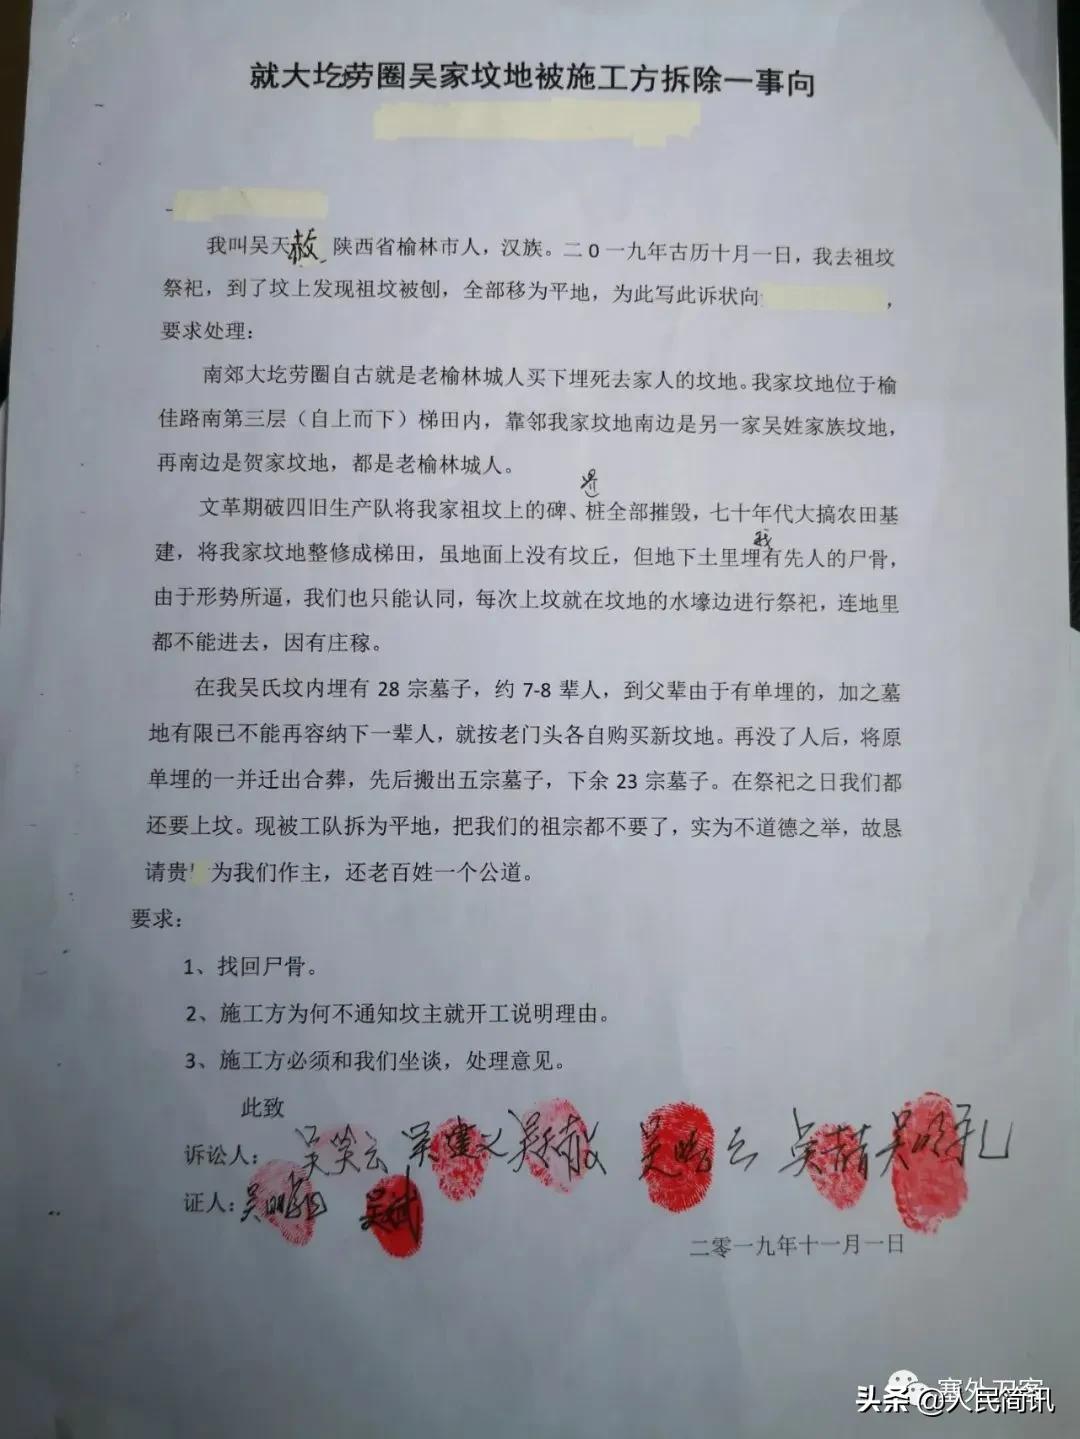 就大圪劳圈吴家坟地被施工方拆除一事向
我叫吴天赦 陕西省榆林市人，汉族。二0一九年古历十月一日，我去祖坟
祭祀，到了坟上发现祖坟被刨，全部移为平地，为此写此诉状向，
要求处理：
南郊大圪劳圈自古就是老榆林城人买下埋死去家人的坟地。我家坟地位于榆
佳路南第三层（自上而下）梯田内，靠邻我家坟地南边是另一家吴姓家族坟地，
再南边是贺家坟地，都是老榆林城人。
文革期破四旧生产队将我家祖坟上的碑、桩全部摧毁，七十年代大搞农田基
我
建，将我家坟地整修成梯田，虽地面上没有坟丘，但地下土里埋有先人的尸骨，
由于形势所逼，我们也只能认同，每次上坟就在坟地的水壕边进行祭祀，连地里
都不能进去，因有庄稼。
在我吴氏坟内埋有 28 宗墓子，约 7-8 辈人，到父辈由于有单埋的，加之墓
地有限已不能再容纳下一辈人，就按老门头各自购买新坟地。再没了人后，将原
单埋的一并迁出合葬，先后搬出五宗墓子，下余 23 宗墓子。在祭祀之日我们都
还要上坟。现被工队拆为平地，把我们的祖宗都不要了，实为不道德之举，故恳
请贵 为我们作主，还老百姓一个公道。
要求：
1、找回尸骨。
2、施工方为何不通知坟主就开工说明理由。
3、施工方必须和我们坐谈，处理意见。
此致
诉讼人： 吴笑云 吴建义 吴天赦 吴 云 吴 吴 礼
证人：吴明 吴斌
二零一九年十一月一日
塞外刀客
头条 @人民简讯